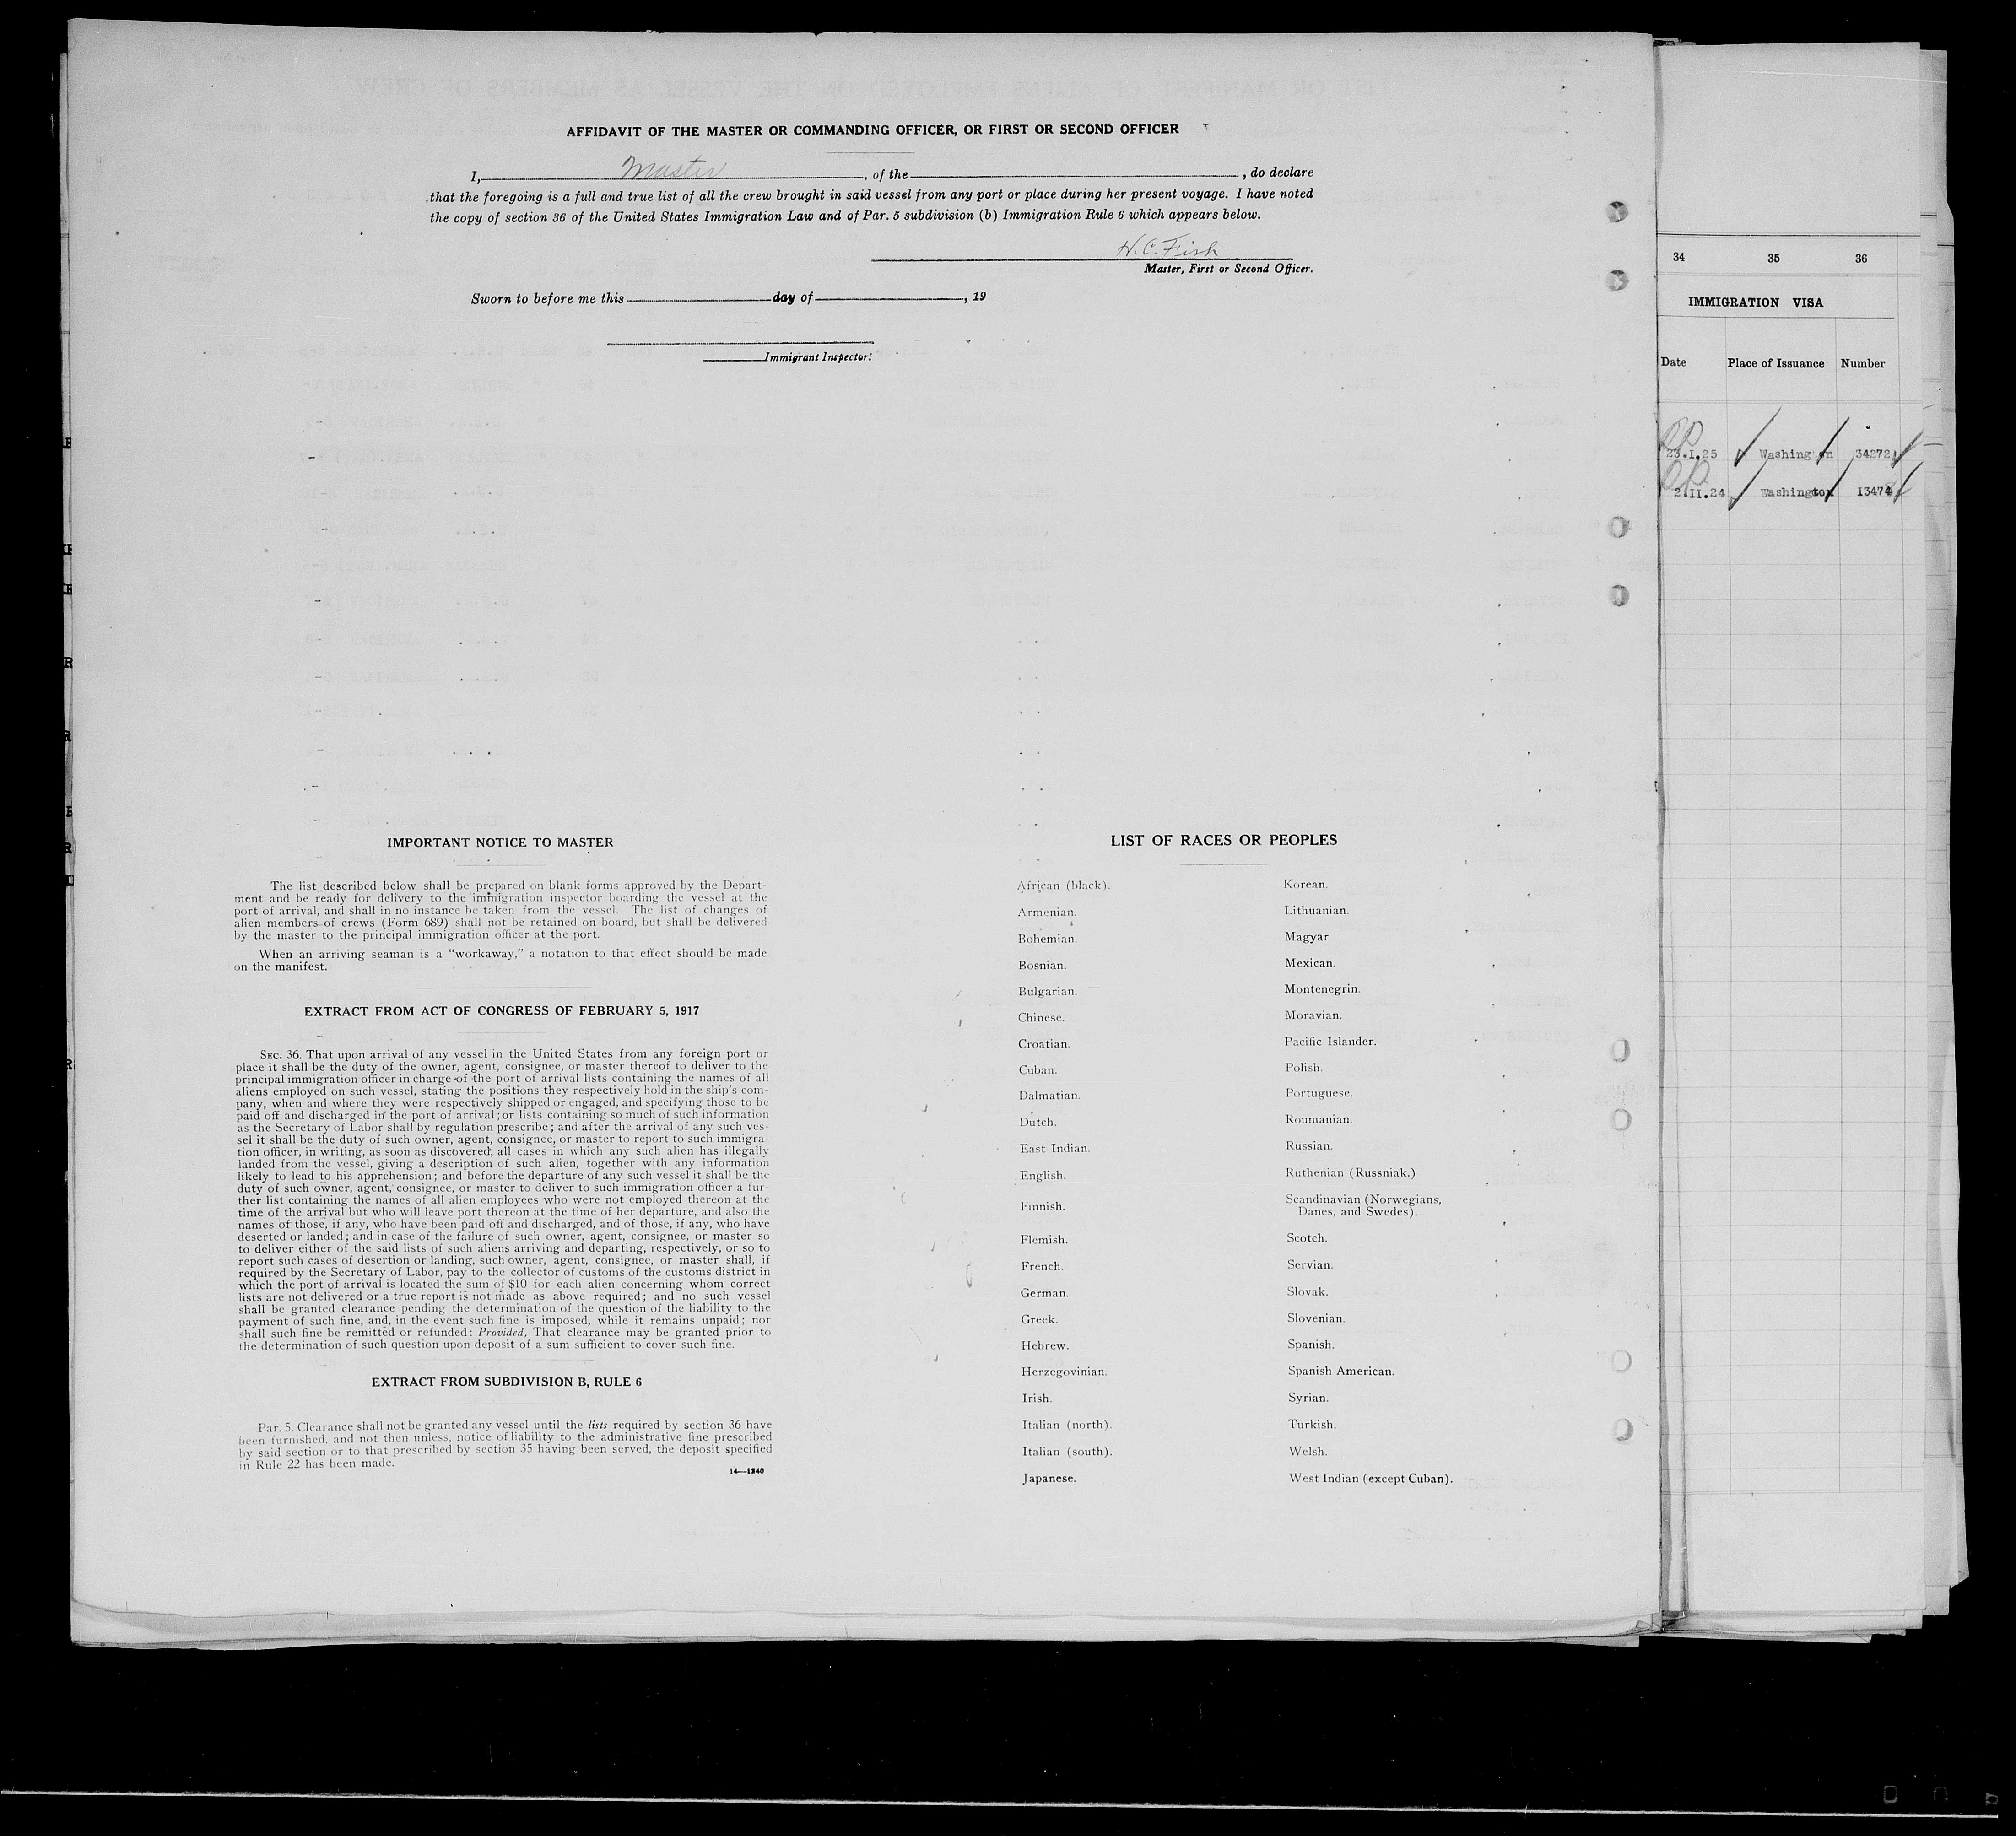 AFFIDAVIT OF THE MASTER OR COMMANDING OFFICER, OR FIRST OR SECOND OFFICER
I, Master, of the , do declare
that the foregoing is a full and true list of all the crew brought in said vessel from any port or place during her present voyage. I have noted
the copy of section 36 of the United States Immigration Law and of Par. 5 subdivision (b) Immigration Rule 6 which appears below.
H. C. Fish
Master, First or Second Officer.
Sworn to before me this day of , 19
Immigrant Inspector.
IMPORTANT NOTICE TO MASTER
The list described below shall be prepared on blank forms approved by the Depart-
ment and be ready for delivery to the immigration inspector boarding the vessel at the
port of arrival, and shall in no instance be taken from the vessel. The list of changes of
alien members of crews (Form 689) shall not be retained on board, but shall be delivered
by the master to the principal immigration officer at the port.
When an arriving seaman is a "workaway," a notation to that effect should be made
on the manifest.
EXTRACT FROM ACT OF CONGRESS OF FEBRUARY 5, 1917
SEC. 36. That upon arrival of any vessel in the United States from any foreign port or
place it shall be the duty of the owner, agent, consignee, or master thereof to deliver to the
principal immigration officer in charge of the port of arrival lists containing the names of all
aliens employed on such vessel, stating the positions they respectively hold in the ship's com-
pany, when and where they were respectively shipped or engaged, and specifying those to be
paid off and discharged in the port of arrival; or lists containing so much of such information
as the Secretary of Labor shall by regulation prescribe; and after the arrival of any such ves-
sel it shall be the duty of such owner, agent, consignee, or master to report to such immigra-
tion officer, in writing, as soon as discovered, all cases in which any such alien has illegally
landed from the vessel, giving a description of such alien, together with any information
likely to lead to his apprehension; and before the departure of any such vessel it shall be the
duty of such owner, agent, consignee, or master to deliver to such immigration officer a fur-
ther list containing the names of all alien employees who were not employed thereon at the
time of the arrival but who will leave port thereon at the time of her departure, and also the
names of those, if any, who have been paid off and discharged, and of those, if any, who have
deserted or landed; and in case of the failure of such owner, agent, consignee, or master so
to deliver either of the said lists of such aliens arriving and departing, respectively, or so to
report such cases of desertion or landing, such owner, agent, consignee, or master shall, if
required by the Secretary of Labor, pay to the collector of customs of the customs district in
which the port of arrival is located the sum of $10 for each alien concerning whom correct
lists are not delivered or a true report is not made as above required; and no such vessel
shall be granted clearance pending the determination of the question of the liability to the
payment of such fine, and, in the event such fine is imposed, while it remains unpaid; nor
shall such fine be remitted or refunded: Provided, That clearance may be granted prior to
the determination of such question upon deposit of a sum sufficient to cover such fine.
EXTRACT FROM SUBDIVISION B, RULE 6
Par. 5. Clearance shall not be granted any vessel until the lists required by section 36 have
been furnished, and not then unless, notice of liability to the administrative fine prescribed
by said section or to that prescribed by section 35 having been served, the deposit specified
in Rule 22 has been made.
14—1240
LIST OF RACES OR PEOPLES
African (black).
Armenian.
Bohemian.
Bosnian.
Bulgarian.
Chinese.
Croatian.
Cuban.
Dalmatian.
Dutch.
East Indian.
English.
Finnish.
Flemish.
French.
German.
Greek.
Hebrew.
Herzegovinian.
Irish.
Italian (north).
Italian (south).
Japanese.
Korean.
Lithuanian.
Magyar
Mexican.
Montenegrin.
Moravian.
Pacific Islander.
Polish.
Portuguese.
Roumanian.
Russian.
Ruthenian (Russniak.)
Scandinavian (Norwegians,
Danes, and Swedes).
Scotch.
Servian.
Slovak.
Slovenian.
Spanish.
Spanish American.
Syrian.
Turkish.
Welsh.
West Indian (except Cuban).
34 35 36
IMMIGRATION VISA
Date Place of Issuance Number
23.I.25 Washington 34272
2.II.24 Washington 13474